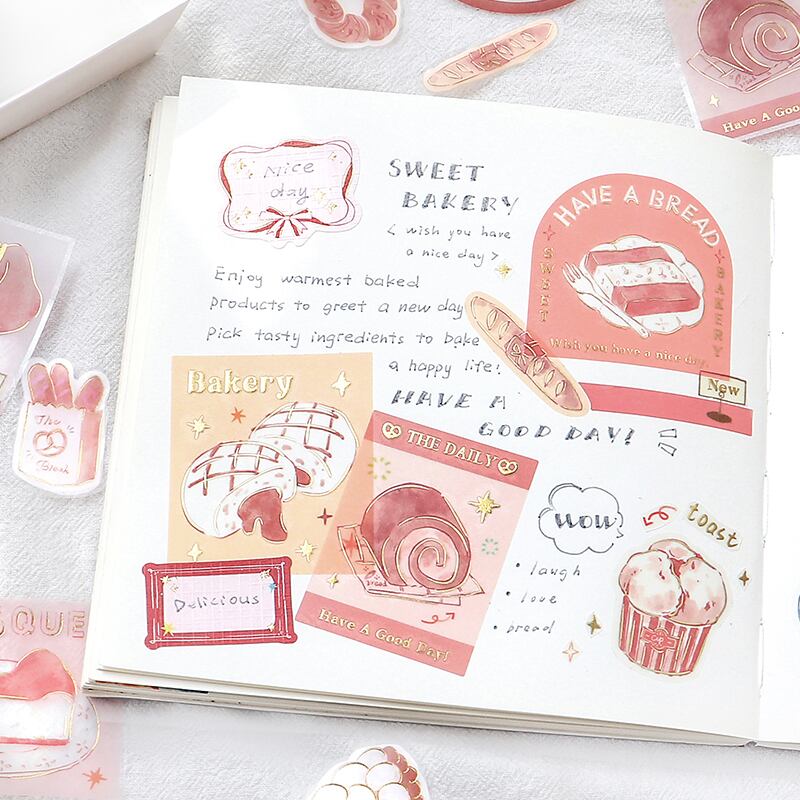 Have A Good
Nice
day
SWEET
BAKERY
< wish you have
a nice day >
HAVE A BREAD
SWEET
BAKERY
Wish you have a nice day.
New
Enjoy warmest baked
products to greet a new day
Pick tasty ingredients to bake
a happy life!
HAVE A
GOOD DAY!
Bakery
THE DAILY
bread
Have A Good Day!
Delicious
WOW
• laugh
• love
• bread
toast
The
SQUE